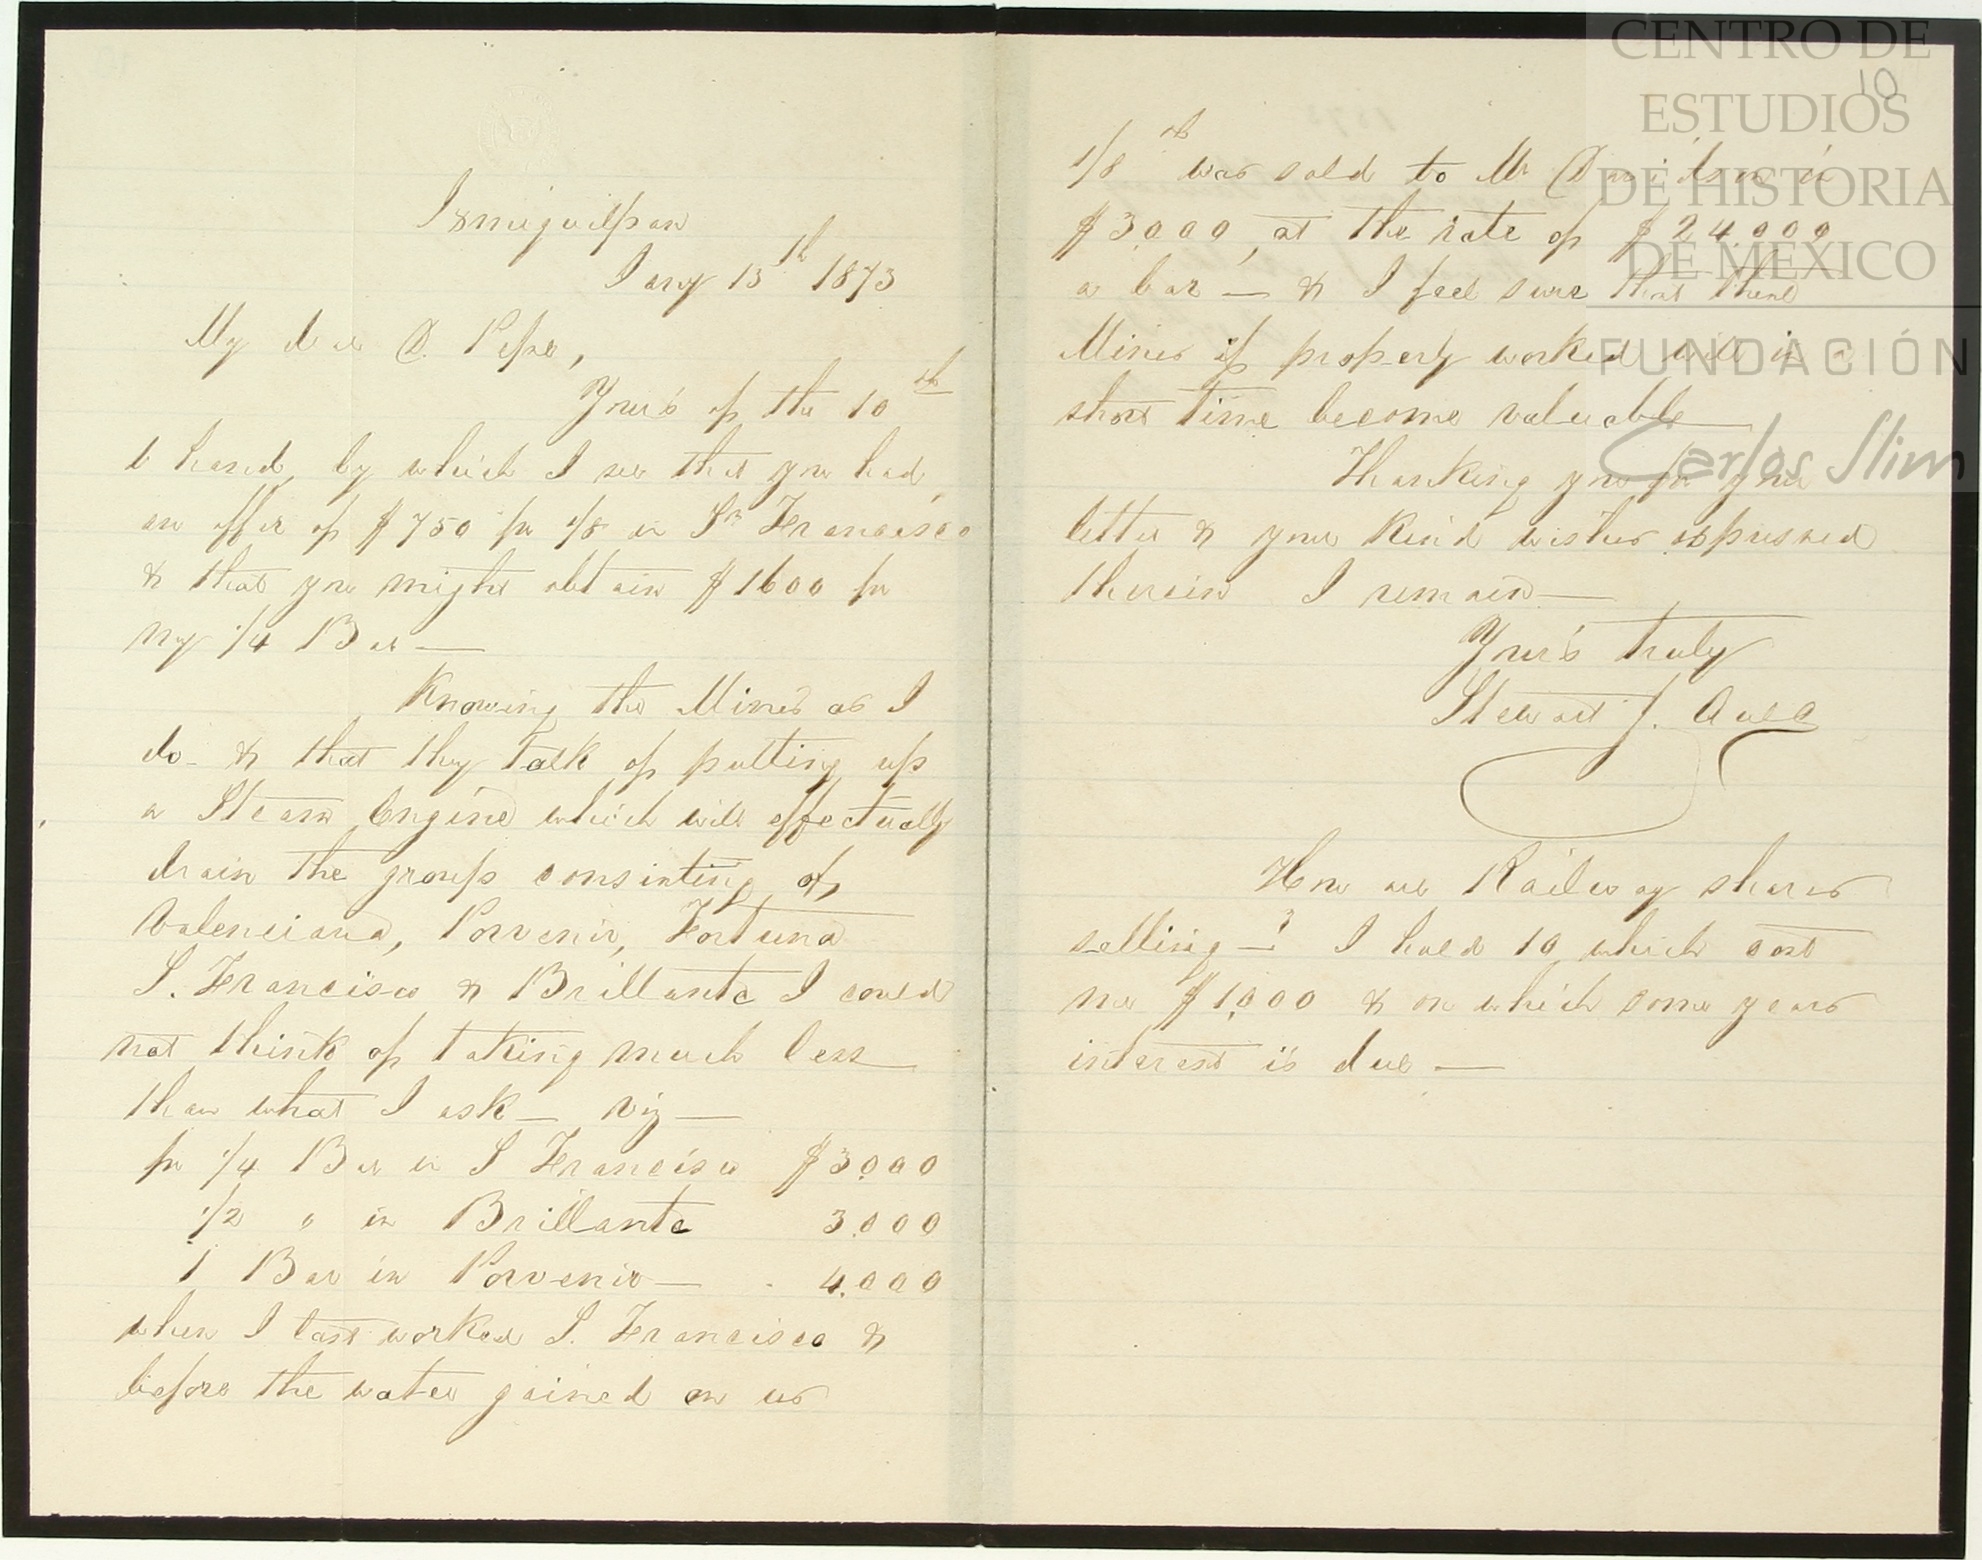 Ixmiquilpan
Jany 13th 1873
My dear D. Pepe,
Yours of the 10th
to hand, by which I see that you had
an offer of $750 for 1/8 in Sn Francisco
& that you might obtain $1600 for
my 1/4 Bar —
Knowing the Mines as I
do - & that they talk of putting up
a Steam Engine which will effectually
drain the group consisting of
Valenciana, Porvenir, Fortuna
S. Francisco & Brillante I could
not think of taking much less
than what I ask — viz —
for 1/4 Bar in S Francisco $3.000
1/2 " in Brillante 3.000
1 Bar in Porvenir — . 4.000
when I last worked S. Francisco &
before the water gained on us
10
1/8th was sold to Mr Davidson in
$3.000, at the rate of $24.000
a bar — & I feel sure that these
Mines if properly worked will in a
short time become valuable —
Thanking you for your
letter & your kind wishes expressed
therein I remain —
Your's truly
Stewart J.
How are Railway shares
selling —? I hold 10 which cost
me $1.000 & on which some years
interest is due —
CENTRO DE
ESTUDIOS
DE HISTORIA
DE MÉXICO
FUNDACIÓN
Carlos Slim